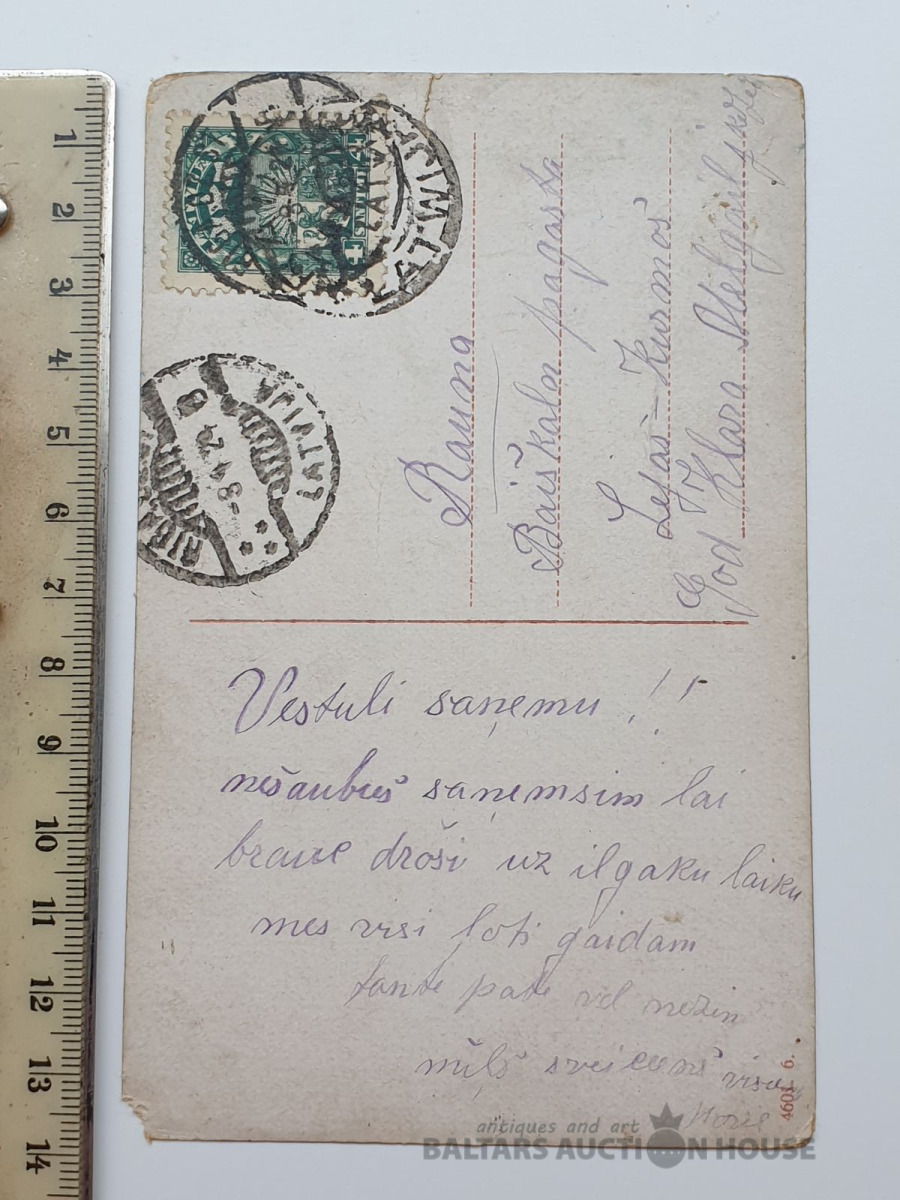 LATWIJA
LATVIJAS
4
LATVIJA
RIGA
8 4 24 8
Rauna
Baiškaln pagasta
Lejas-Kurmos
God Klara
Vestuli saņemu !!
nešaubus saņemsim lai
brauc droši uz ilgaku laiku
mes visi ļoti gaidam
tante pate vel nezin
mīļš sveiciens visus
4603 6.
antiques and art
BALTARS AUCTION HOUSE
1
2
3
4
5
6
7
8
9
10
11
12
13
14